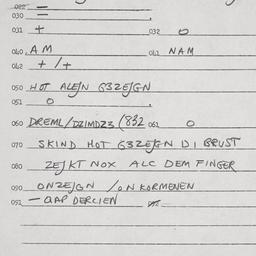 022 —
030 =
031 + 032 O
040 AM 041 NAM
042 + /+
050 HOT ALEJN G3ZEJGN
051 O
060 DREML/DZIMDZ3 (832 061 O
070 SKIND HOT G3ZEJGN DI BRUST
080 ZEJKT NOX ALC DEM FINGER
090 ONZEJGN /ON KORMENEN
091 — OAP DERCIEN